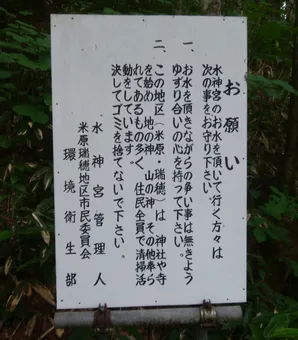 お願い
水神宮のお水を頂いて行く方々は
次の事をお守り下さい。
一、お水を頂きながらの争い事は無きよう
ゆずり合いの心を持って下さい。
二、この地区（米原・瑞穂）は、神社や寺
を始め、地の神・山の神、その他奉ら
れてあるもの多く、住民全員で清掃活
動をしています。
決してゴミを捨てないで下さい。
水神宮管理人
米原瑞穂地区市民委員会
環境衛生部